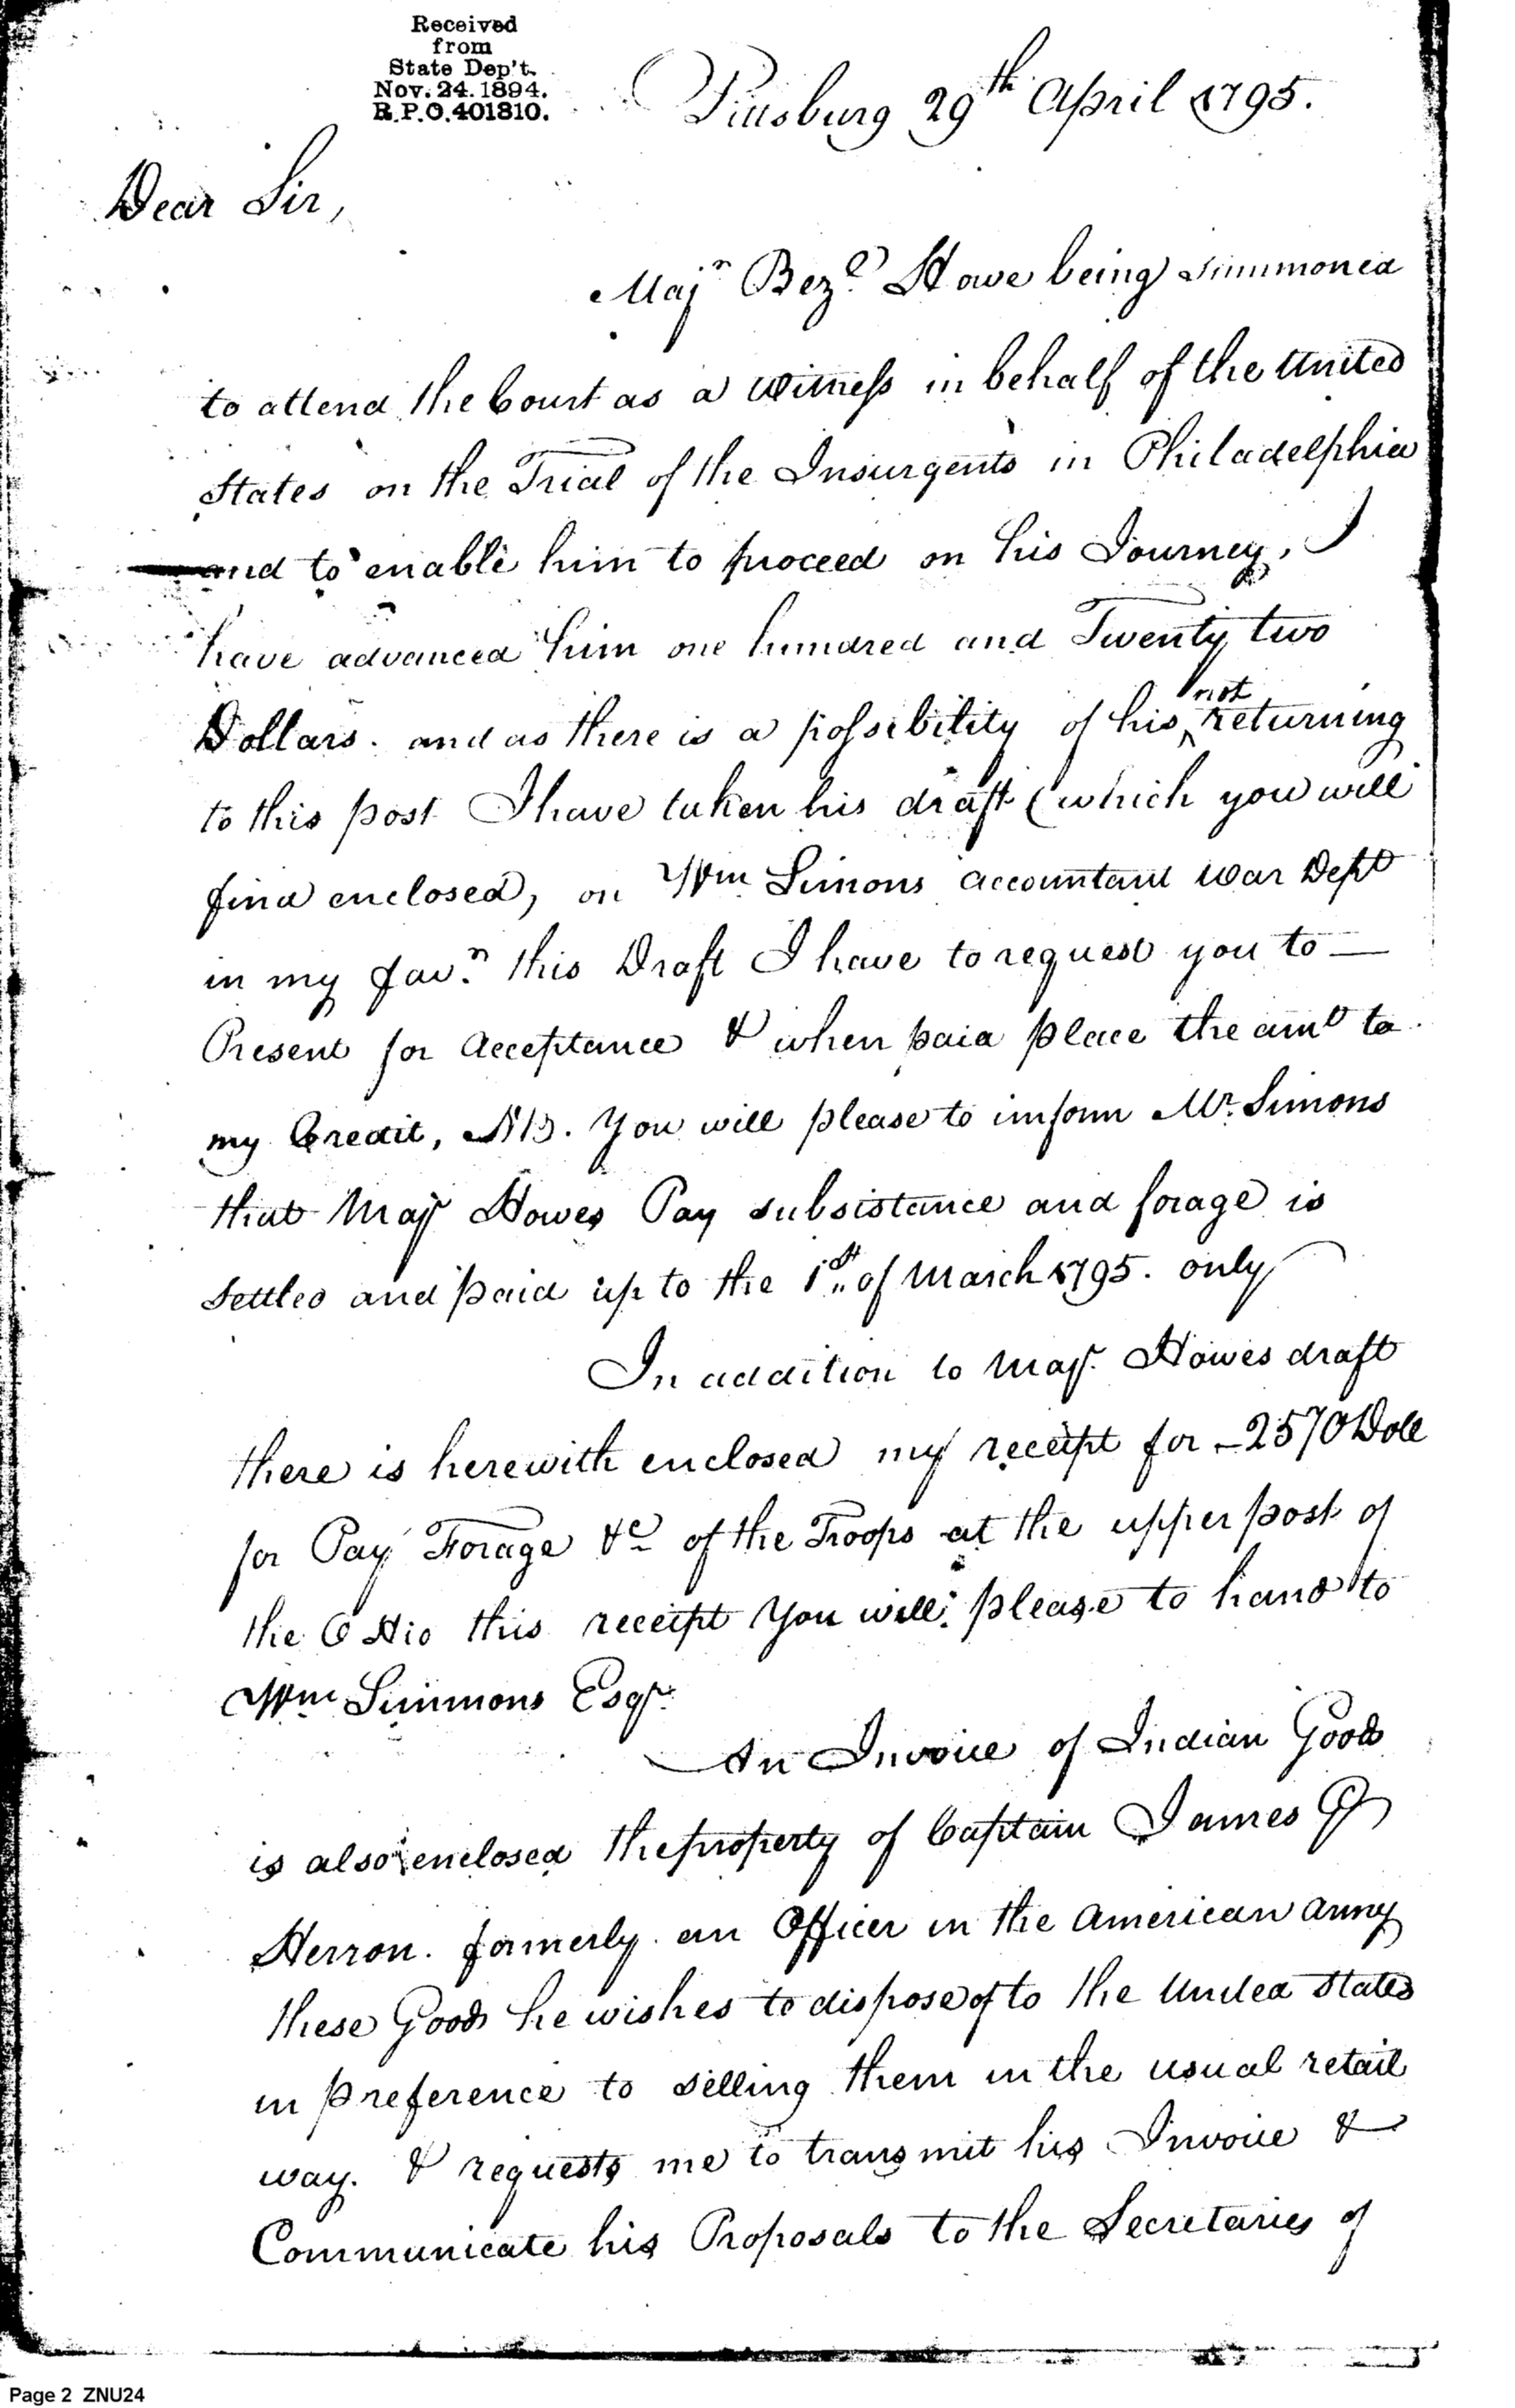 Received
from
State Dep't.
Nov. 24. 1894.
R.P.O. 401310.
Pittsburg 29th April 1795.
Dear Sir,
Majr Bezl Howe being summoned
to attend the Court as a Witness in behalf of the United
States on the Trial of the Insurgents in Philadelphia
and to enable him to proceed on his Journey, I
have advanced him one hundred and Twenty two
Dollars. and as there is a possibility of his not returning
to this post I have taken his draft (which you will
find enclosed, on Wm Simons accountant War Dept
in my favr. this Draft I have to request you to —
Present for Acceptance & when paid place the amt to
my Credit, NB. You will please to inform Mr. Simons
that Majr Howes Pay subsistance and forage is
settled and paid up to the 1st of March 1795. only
In addition to Majr. Howes draft
there is herewith enclosed my receipt for – 2570 Doll
for Pay Forage &c of the Troops at the upper post of
the OHio this receipt You will please to hand to
Wm Simmons Esqr.
An Invoice of Indian Goods
is also enclosed the property of Captain James G
Herron. formerly an Officer in the American army
these Goods he wishes to dispose of to the United States
in preference to selling them in the usual retail
way. & requests me to transmit his Invoice &
Communicate his Proposals to the Secretaries of
Page 2 ZNU24